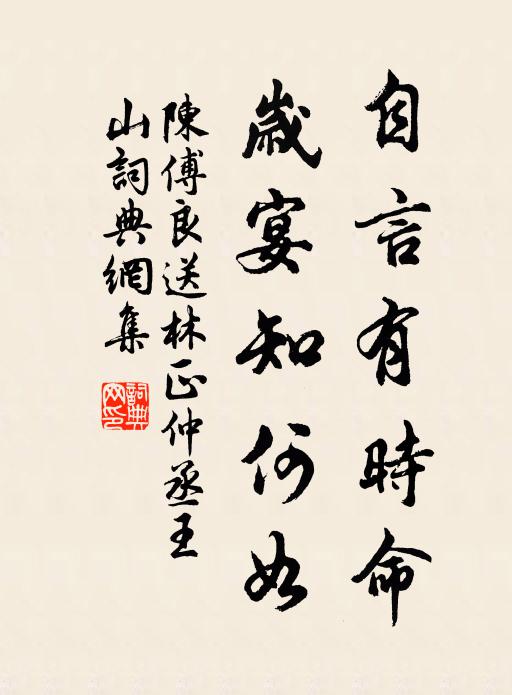 自言有時命
歲宴知何如
陳傅良送林正仲丞玉
山詞典網集
詞典
网印